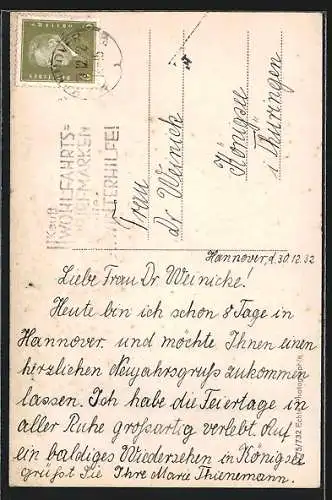 Kauft
WOHLFAHRTS=
BRIEFMARKEN
WINTERHILFE!
Frau
Dr Weinick
Königsee
i Thüringen
Hannover, d. 30.12.32
Liebe Frau Dr Weinicke!
Heute bin ich schon 8 Tage in
Hannover und möchte Ihnen einen
herzlichen Neujahrsgruß zukommen
lassen. Ich habe die Feiertage in
aller Ruhe großartig verlebt. Auf
ein baldiges Wiedersehen in Königsee
grüßt Sie Ihre Marie Thienemann.